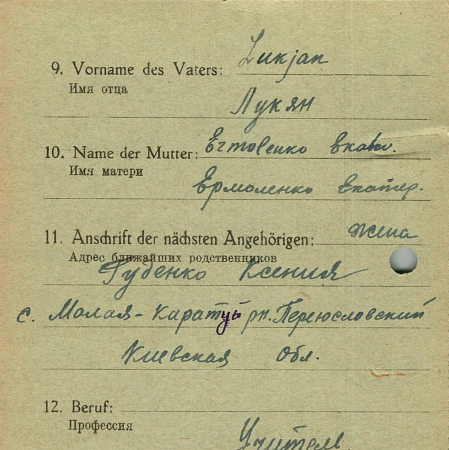 9. Vorname des Vaters: Lukjan
Имя отца
Лукян
10. Name der Mutter:
Имя матери
Ермоленко Екатер.
11. Anschrift der nächsten Angehörigen: жена
Адрес ближайших родственников
Губенко Ксения
с. Малая-Каратуь рн. Переюсловский
Киевская Обл.
12. Beruf:
Профессия
Учитель